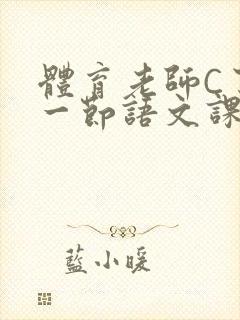 體育老師C
一節語文課
藍小暖